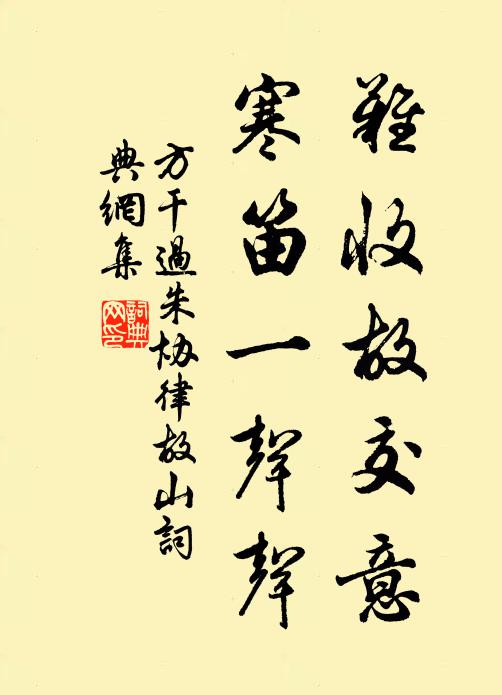 難收故交意
寒笛一聲聲
方干過朱協律故山詞
典網集
詞典
网印